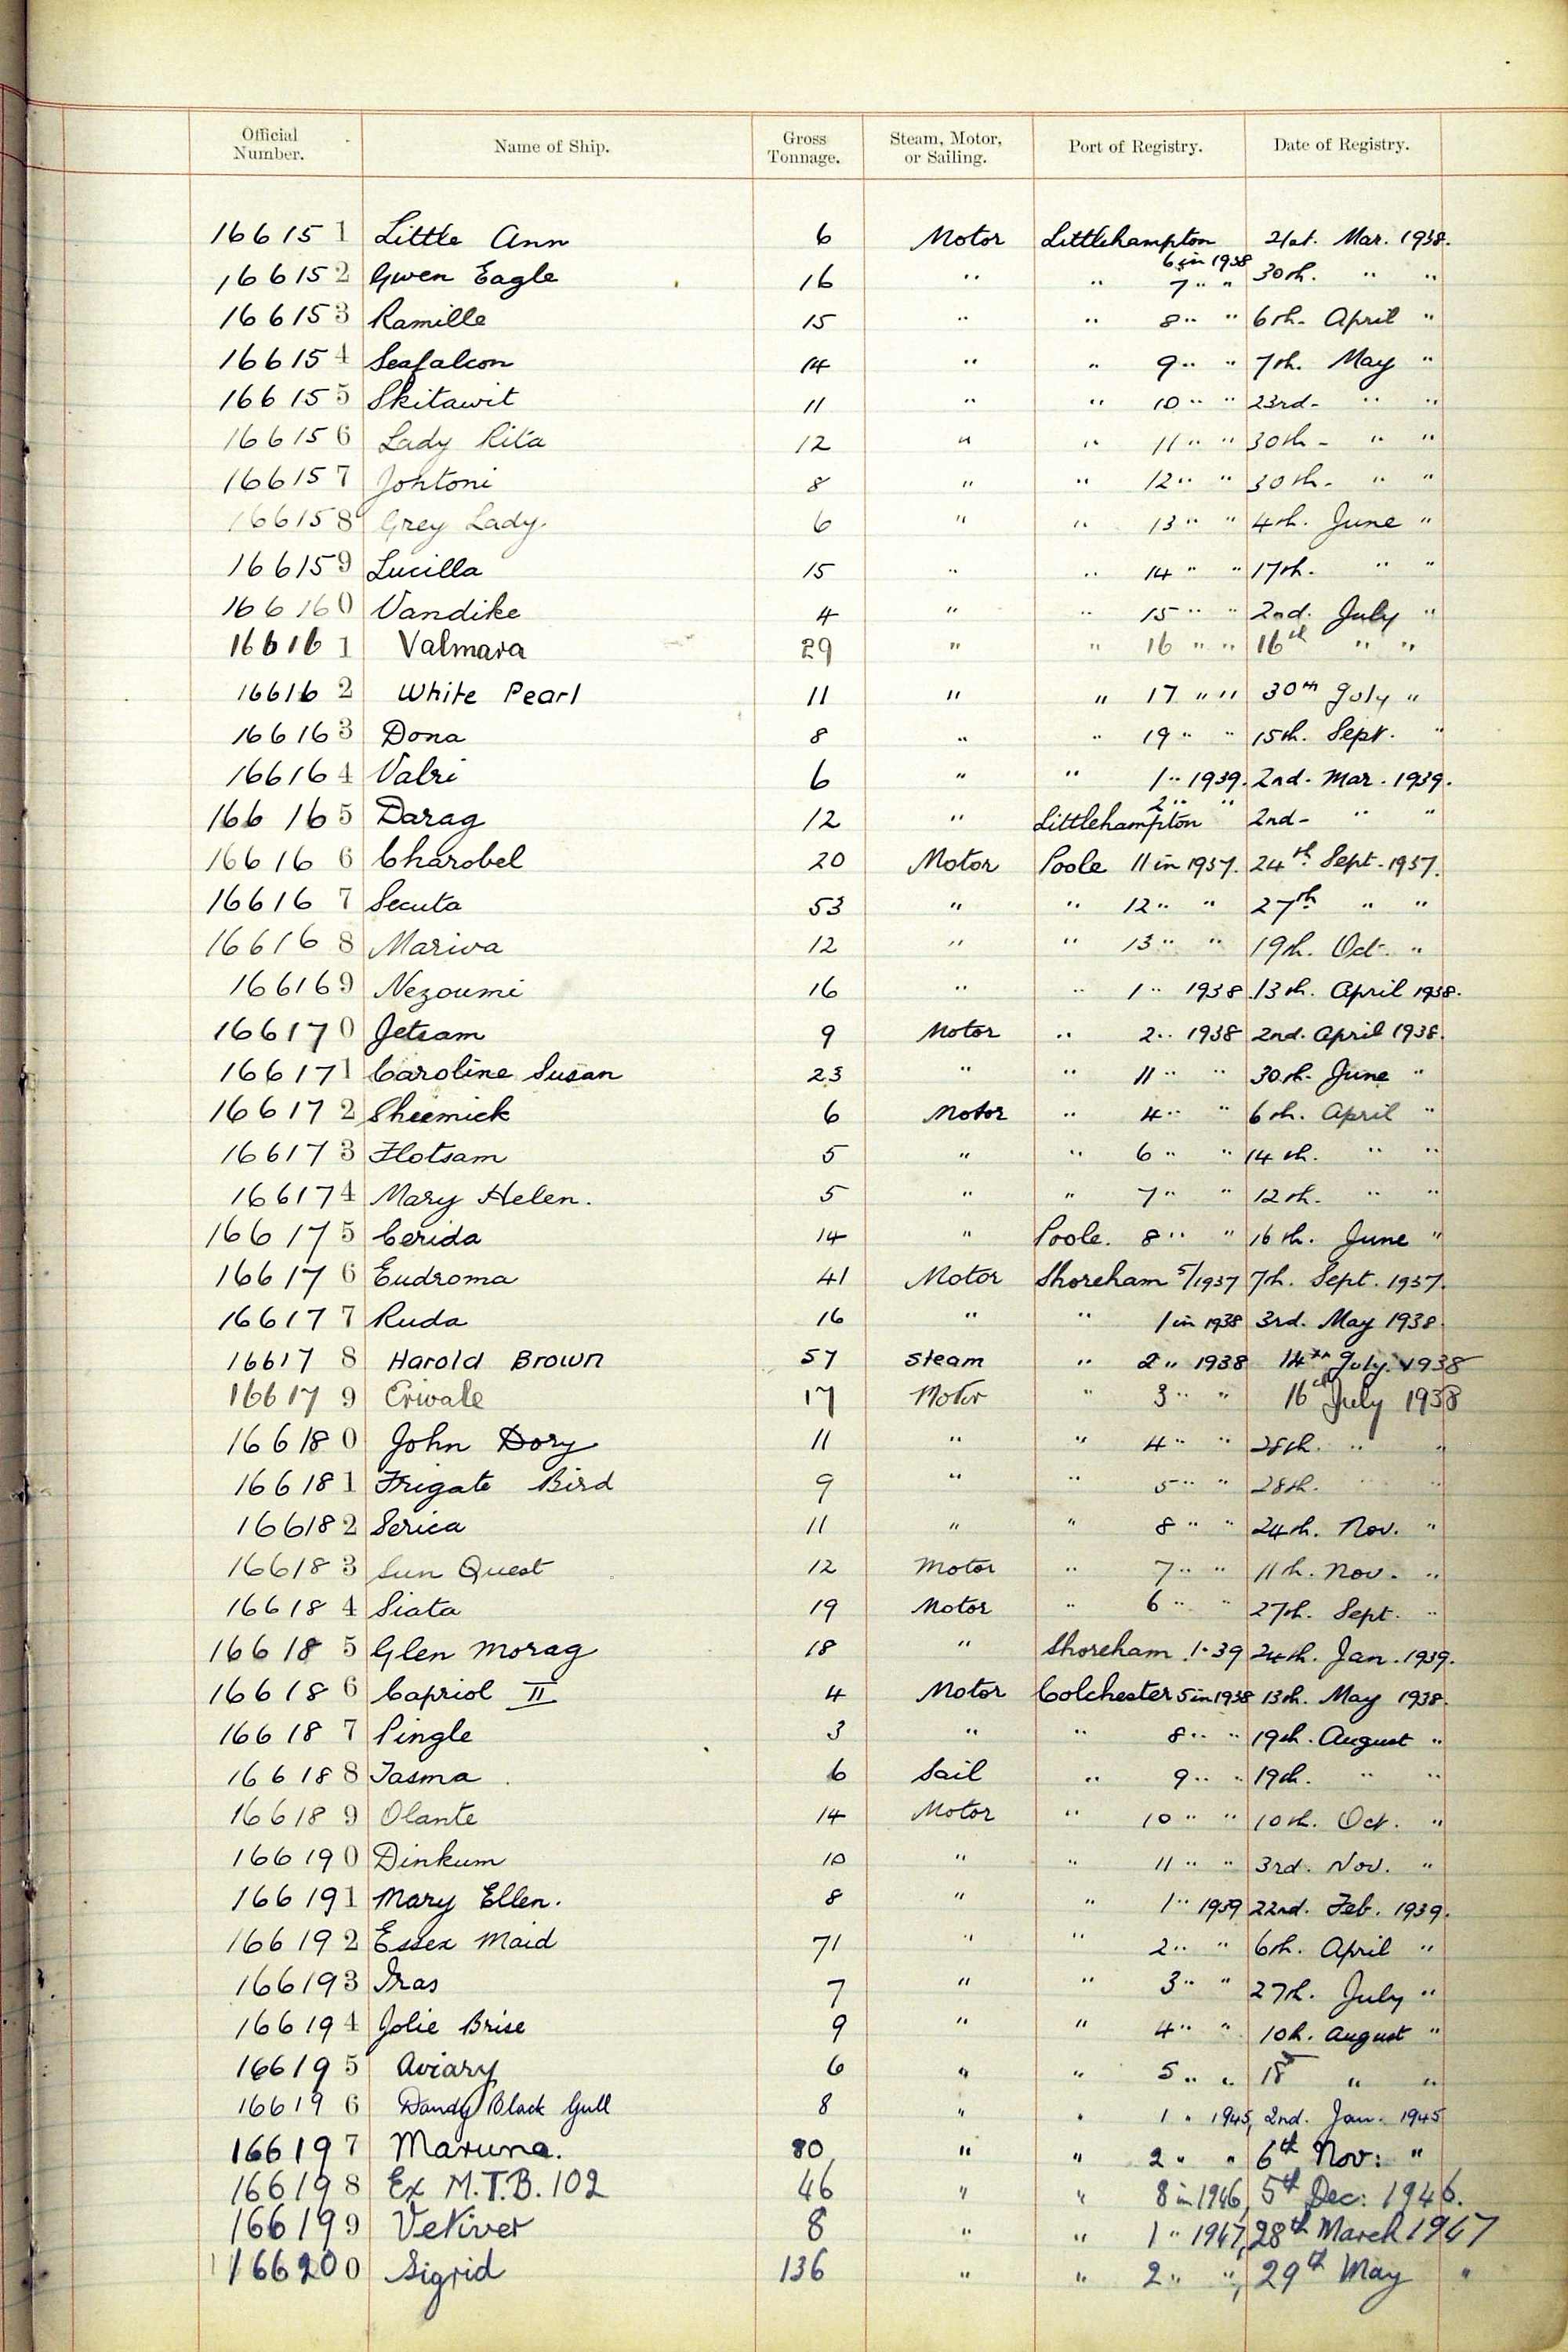 Official Number. Name of Ship. Gross Tonnage. Steam, Motor, or Sailing. Port of Registry. Date of Registry.
166151 Little Ann 6 Motor Littlehampton 6 in 1938 21st. Mar. 1938.
166152 Gwen Eagle 16 " " 7 " " 30th. " "
166153 Ramille 15 " " 8 " " 6th. April "
166154 Seafalcon 14 " " 9 " " 7th. May "
166155 Skitawit 11 " " 10 " " 23rd. " "
166156 Lady Rita 12 " " 11 " " 30th. " "
166157 Johtoni 8 " " 12 " " 30th. " "
166158 Grey Lady. 6 " " 13 " " 4th. June "
166159 Lucilla 15 " " 14 " " 17th. " "
166160 Vandike 4 " " 15 " " 2nd. July "
166161 Valmara 29 " " 16 " " 16th " "
166162 White Pearl 11 " " 17 " " 30th July "
166163 Dona 8 " " 19 " " 15th. Sept. "
166164 Valri 6 " " 1 " 1939. 2nd. Mar. 1939.
166165 Darag 12 " Littlehampton 2 " " 2nd- " "
166166 Charobel 20 Motor Poole 11 in 1937. 24th Sept. 1937.
166167 Secuta 53 " " 12 " " 27th " "
166168 Mariva 12 " " 13 " " 19th. Oct. "
166169 Nezoumi 16 " " 1 " 1938 13th. April 1938.
166170 Jetsam 9 Motor " 2 " 1938 2nd. April 1938.
166171 Caroline Susan 23 " " 11 " " 30th. June "
166172 Sheemick 6 Motor " 4 " " 6th. April "
166173 Flotsam 5 " " 6 " " 14th. " "
166174 Mary Helen. 5 " " 7 " " 12th. " "
166175 Cerida 14 " Poole. 8 " " 16th. June "
166176 Eudroma 41 Motor Shoreham 5/1937 7th. Sept. 1937.
166177 Ruda 16 " " 1 in 1938 3rd. May 1938.
166178 Harold Brown 57 Steam " 2 " 1938 14th July. 1938
166179 Eriwale 17 Motor " 3 " " 16th July 1938
166180 John Dory 11 " " 4 " " 28th. " "
166181 Frigate Bird 9 " " 5 " " 28th. " "
166182 Serica 11 " " 8 " " 24th. Nov. "
166183 Sun Quest 12 Motor " 7 " " 11th. Nov. "
166184 Siata 19 Motor " 6 " " 27th. Sept. "
166185 Glen Morag 18 " Shoreham 1 · 39 24th. Jan. 1939.
166186 Capriol II 4 Motor Colchester 5 in 1938 13th. May 1938.
166187 Pingle 3 " " 8 " " 19th. August "
166188 Tasma 6 Sail " 9 " " 19th. " "
166189 Olante 14 Motor " 10 " " 10th. Oct. "
166190 Dinkum 10 " " 11 " " 3rd. Nov. "
166191 Mary Ellen. 8 " " 1 " 1939 22nd. Feb. 1939.
166192 Essex Maid 71 " " 2 " " 6th. April "
166193 Iras 7 " " 3 " " 27th. July "
166194 Jolie Brise 9 " " 4 " " 10th. August "
166195 Aviary 6 " " 5 " " 18 " "
166196 Dandy Black Gull 8 " " 1 " 1945, 2nd. Jan. 1945
166197 Maruna. 80 " " 2 " " 6th Nov: "
166198 Ex M.T.B. 102 46 " " 8 in 1946, 5th Dec: 1946.
166199 Vetiver 8 " " 1 " 1947, 28th March 1947
166200 Sigrid 136 " " 2 " ", 29th May "